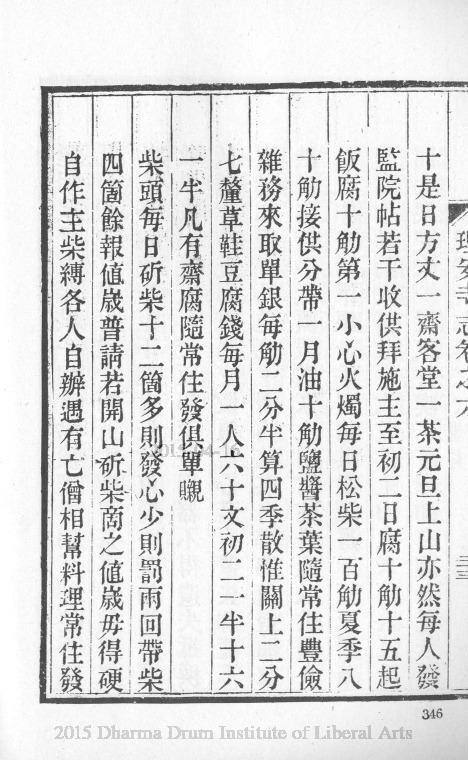 理安寺志卷之六
十是日方丈一齋客堂一茶元旦上山亦然每人發
監院帖若干收供拜施主至初二日腐十觔十五起
飯腐十觔第一小心火燭每日松柴一百觔夏季八
十觔接供分帶一月油十觔鹽醬茶葉隨常住豐儉
雜務來取單銀每觔二分半算四季散惟關上二分
七釐草鞋豆腐錢每月一人六十文初二一半十六
一半凡有齋腐隨常住發俱單瞡
柴頭每日斫柴十二箇多則發心少則罰兩回帶柴
四箇餘報値歲普請若開山斫柴啇之値歲毋得硬
自作主柴縛各人自辦遇有亡僧相幫料理常住發
346
2015 Dharma Drum Institute of Liberal Arts